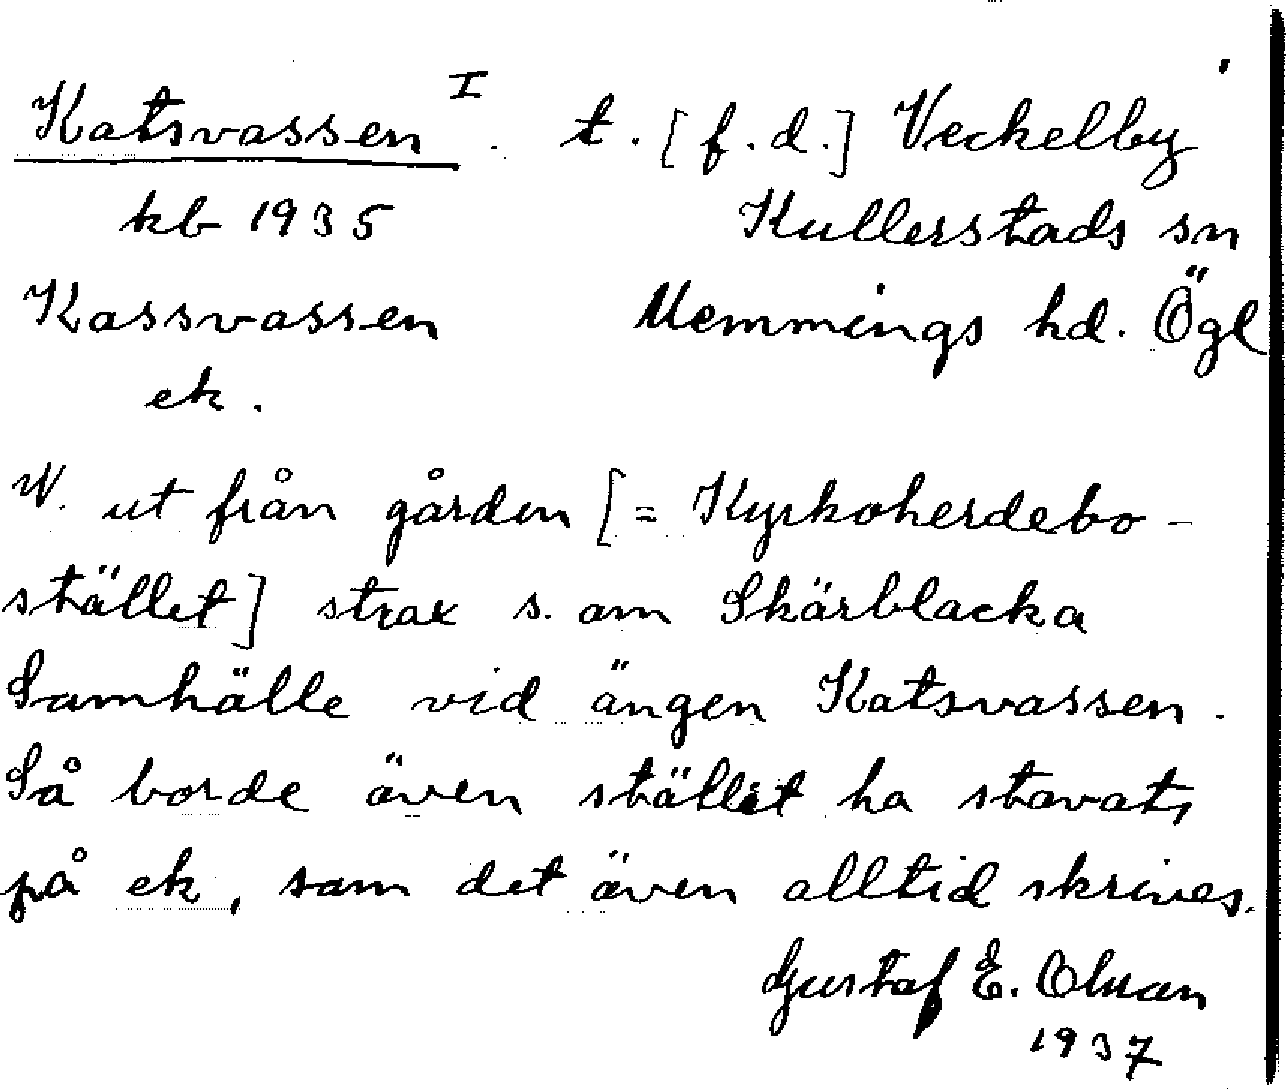 Katsvassen I. t. [f.d.] Veckelby
kb 1935 Kullerstads sn
Kassvassen Memmings hd. Ögl
ek.
N. ut från gården [= Kyrkoherdebo-
stället] strax s. om Skärblacka
Samhälle vid ängen Katsvassen.
Så borde även stället ha stavats
på ek, som det även alltid skrives.
Gustaf E. Olsson
1937